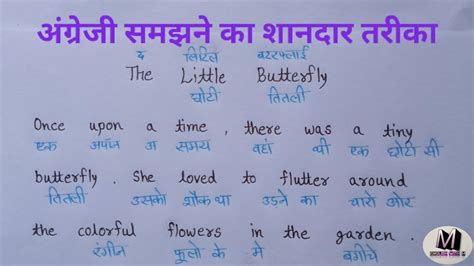 अंग्रेजी समझने का शानदार तरीका
द लिटिल बटरफ्लाई
The Little Butterfly
छोटी तितली
Once upon a time , there was a tiny
एक अपॉन अ समय वहां थी एक छोटी सी
butterfly . She loved to flutter around
तितली उसको शौक था उड़ने का चारो ओर
the colorful flowers in the garden .
रंगीन फूलो के मे बगीचे
M